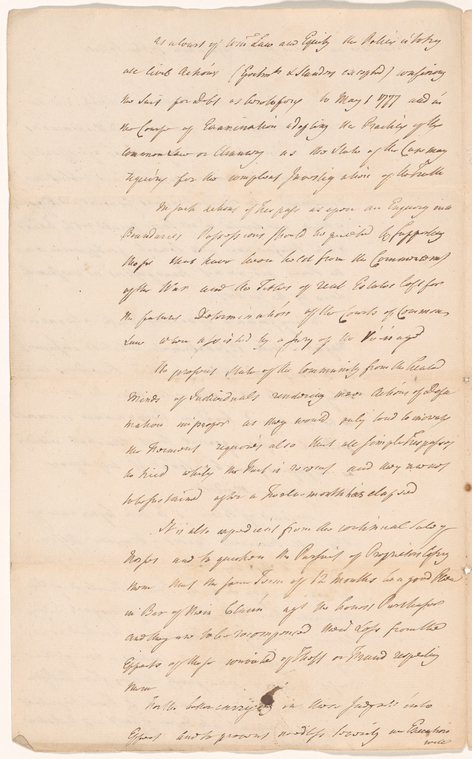 As a Court of Com Law and Equity the Police is to try
all Civil Actions (Ejectmts & Slander excepted) confining
the Suit for Debt as heretofore to May 1 1777 and in
the Course of Examination adopting the Practice of the
Common Law or Chancery as the State of the Case may
require for the compleat Investigation of the Truth
In such actions of Trespass as open an Enquiry into
Boundaries Possessions should be quieted by supporting
those that have been held from the Commencemt
of the War and the Titles of real Estates left for
the future Determination of the Courts of Common
Law when assisted by a Jury of the Vicinage
The present State of the Community from the heated
minds of Individuals rendering mere Actions of Defa
mation improper as they would only tend to increase
the Ferment requires also that all simple Trespasses
be tried while the Fact is recent and they are not
to be sustained after a Twelve-month has elapsed
It is also expedient from the Sale of
Horses and to quicken the Pursuit of Proprietors
them that the same Term of 12 Months be a good Plea
in Bar of their Claim agt the honest Purchaser
and they are to be recompensed their Loss from the
Effects of those convicted of Theft or Fraud respecting
them
For the better carrying in these Judgmts into
Effect and to prevent needless Severity an Execution
will